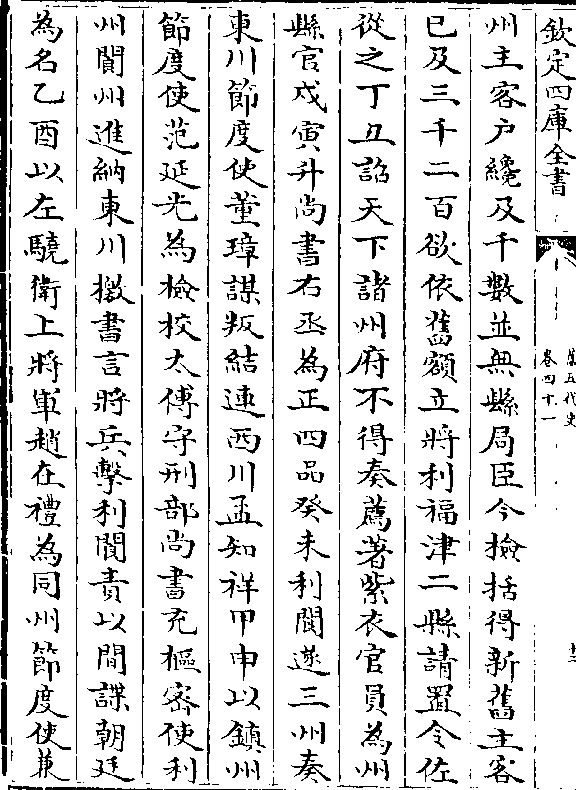 欽定四庫全書
舊五代史
卷四十一
十三
州主客户纔及千數並無縣局臣今檢括得新舊主客
已及三千二百欲依舊額立將利福津二縣請置令佐
從之丁丑詔天下諸州府不得奏薦著紫衣官員為州
縣官戊寅升尚書右丞為正四品癸未利閬遂三州奏
東川節度使董璋謀叛結連西川孟知祥甲申以鎮州
節度使范延光為檢校太傅守刑部尚書充樞密使利
州閬州進納東川檄書言將兵擊利閬責以間諜朝廷
為名乙酉以左驍衛上將軍趙在禮為同州節度使兼